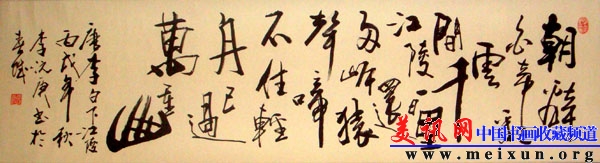 朝辭
白帝彩
雲
間千里
江陵一日
還兩岸猿
聲啼
不住輕
舟已過
萬重
山
唐李白下江陵
丙戌年秋
李 書於
美讯网 中国书画收藏频道
www.meixun.org